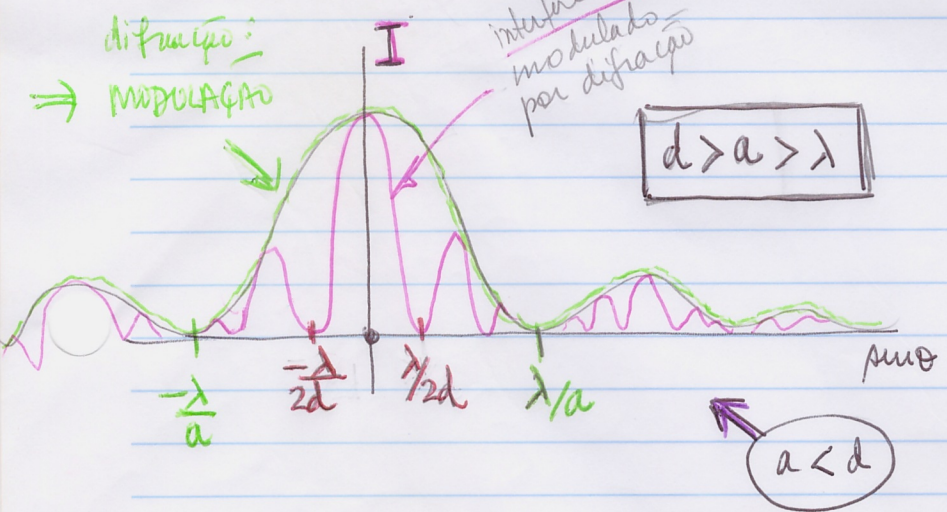 difração:
⇒ MODULAÇÃO
I
modulado
por difração
d > a > λ
-λ/a
-λ/2d
λ/2d
λ/a
senθ
a < d